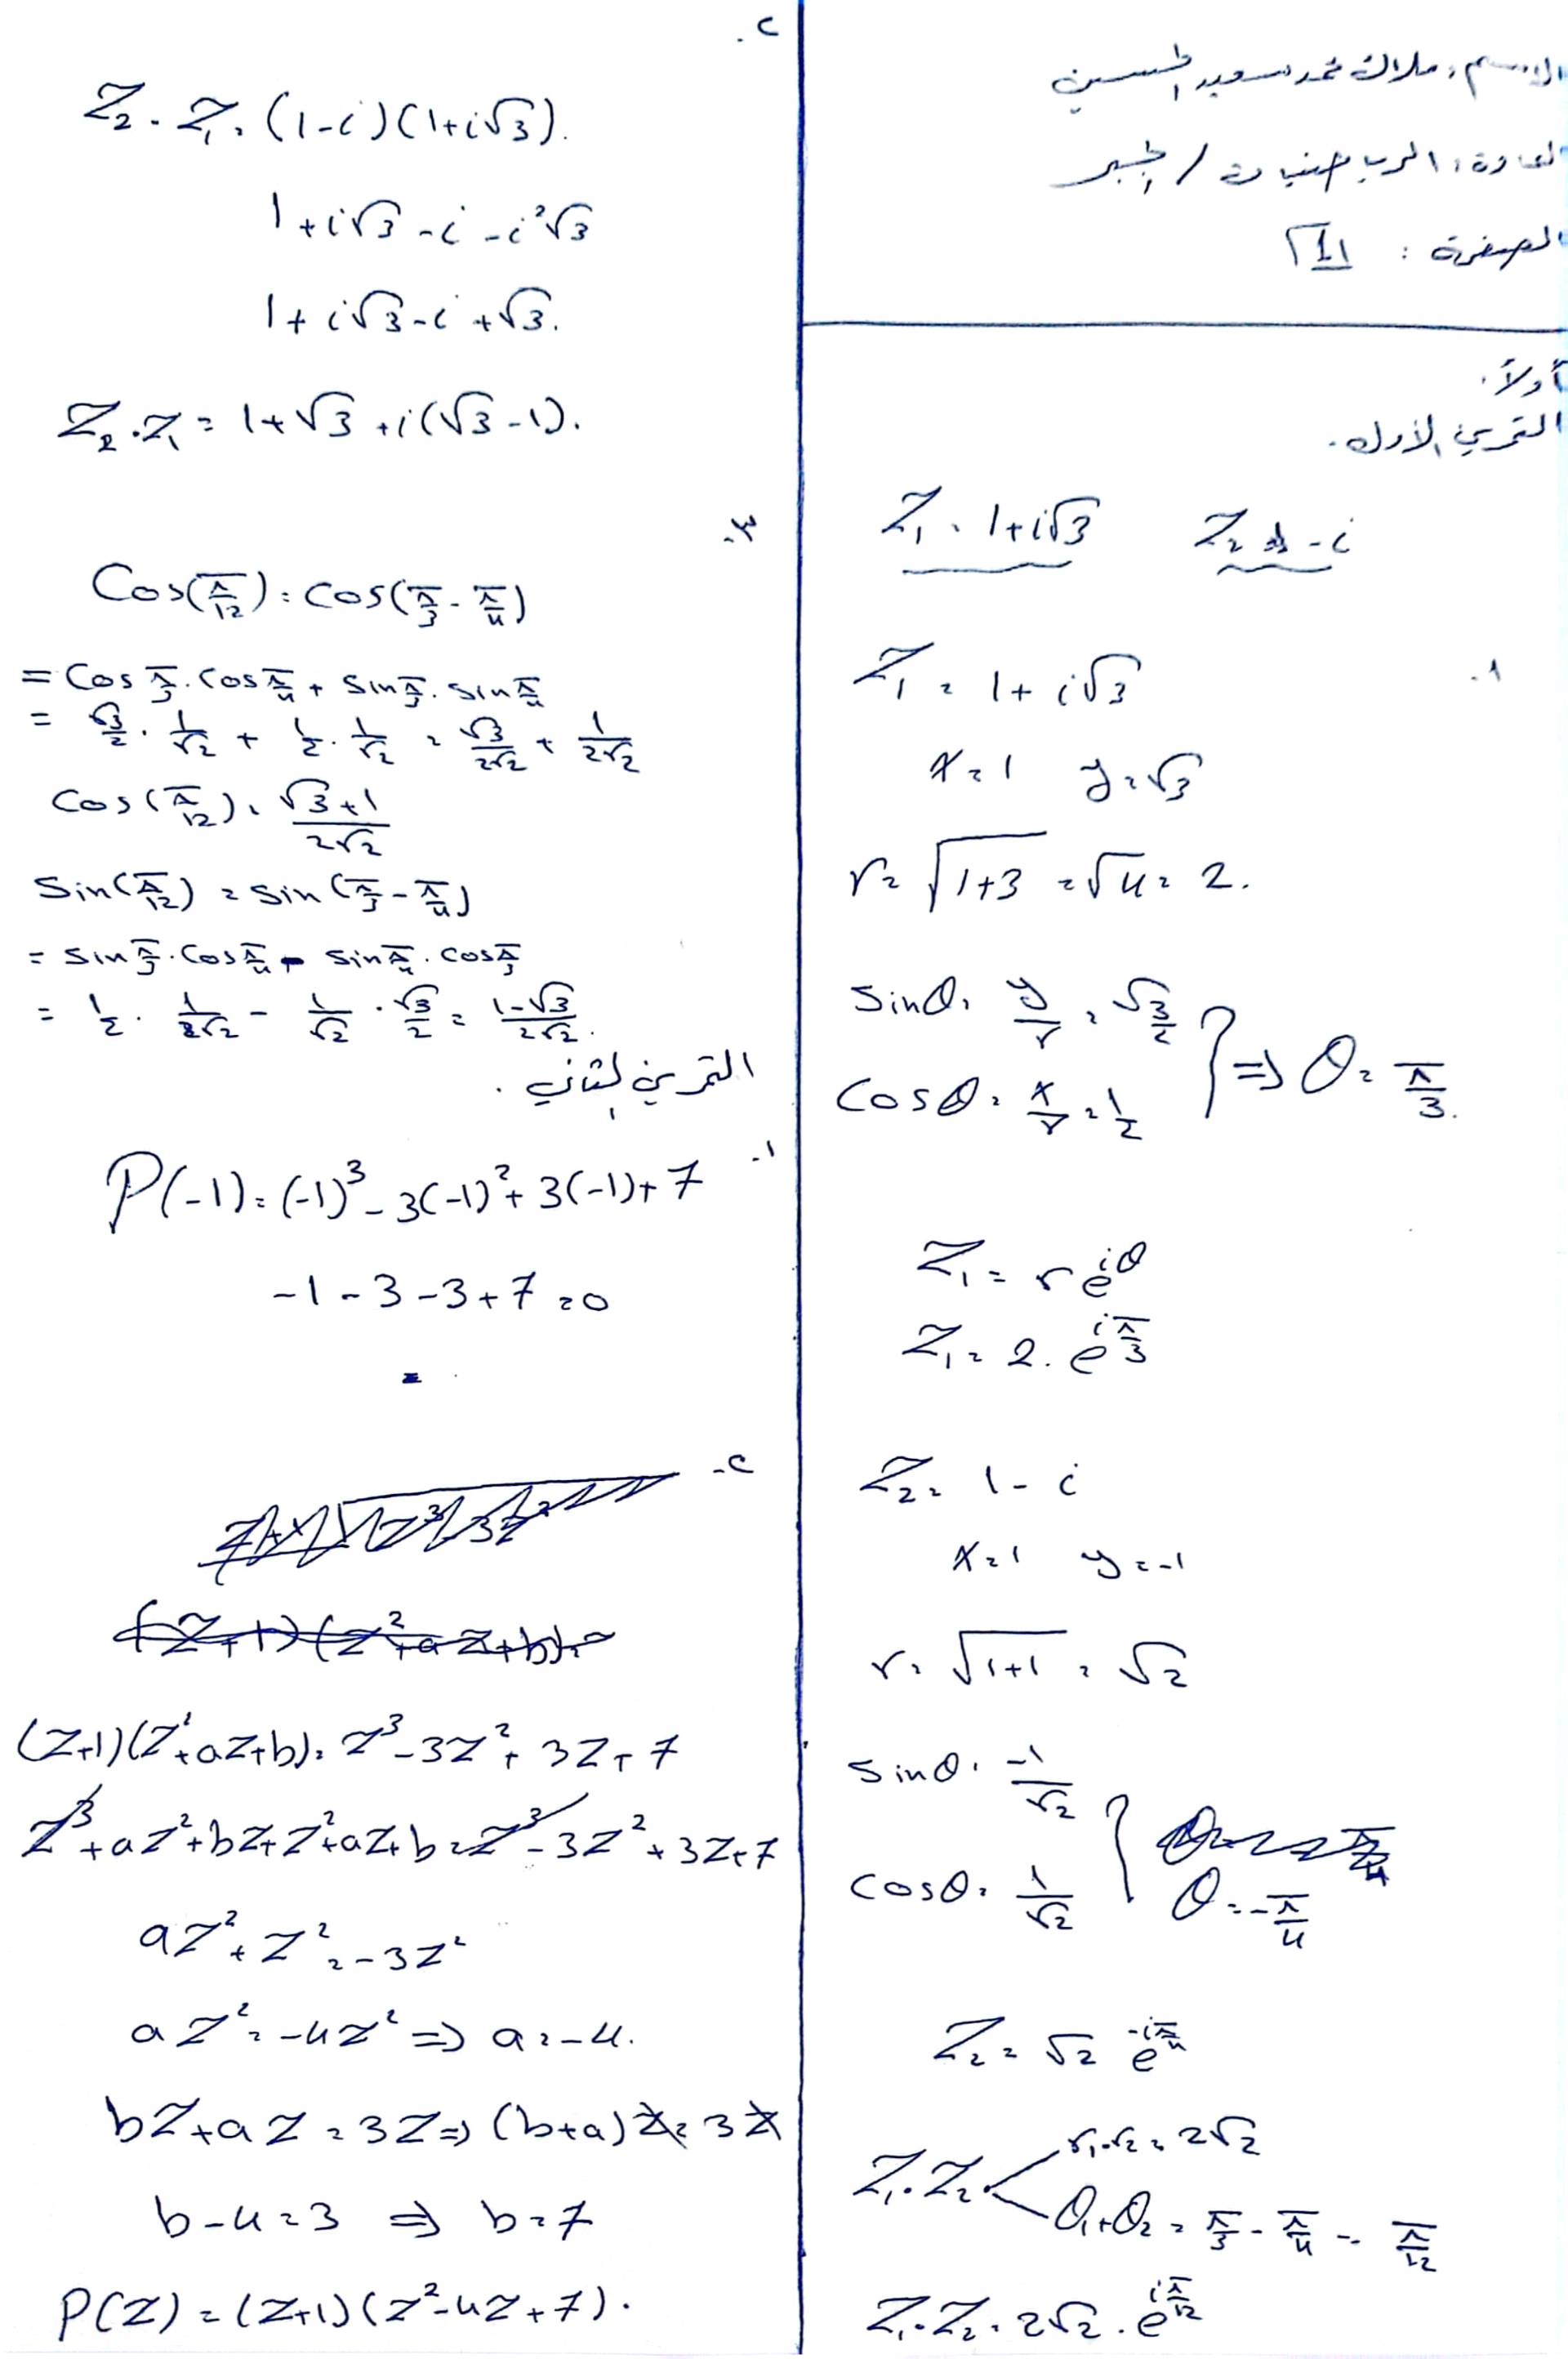 الاسم: ملاك محمد سعيد الحسين
المادة: الرياضيات / الجبر
الصفحة: 1
أولاً:
التمرين الأول.
Z₁ = 1+i√3 Z₂ = 1-i
١-
Z₁ = 1+i√3
x=1 y=√3
r= √(1+3) =√4= 2.
sinθ= y/r = √3/2
cosθ= x/r = 1/2
} => θ= π/3.
Z₁ = r e^(iθ)
Z₁ = 2. e^(iπ/3)
Z₂ = 1-i
x=1 y=-1
r= √(1+1) = √2
sinθ= -1/√2
cosθ= 1/√2
} θ=-π/4
Z₂ = √2 e^(-iπ/4)
Z₁.Z₂ < r₁.r₂ = 2√2
θ₁+θ₂ = π/3 - π/4 = π/12
Z₁.Z₂ = 2√2 . e^(iπ/12)
٢.
Z₂.Z₁ = (1-i)(1+i√3).
1+i√3-i-i²√3
1+i√3-i+√3.
Z₂.Z₁ = 1+√3+i(√3-1).
٣-
Cos(π/12) = cos(π/3 - π/4)
= Cos π/3 . Cos π/4 + Sin π/3 . Sin π/4
= √3/2 . 1/√2 + 1/2 . 1/√2 = √3/2√2 + 1/2√2
Cos(π/12) = (√3+1)/2√2
Sin(π/12) = Sin(π/3 - π/4)
= Sin π/3 . Cos π/4 - Sin π/4 . Cos π/3
= 1/2 . 1/2√2 - 1/√2 . √3/2 = (1-√3)/2√2.
التمرين الثاني.
١-
P(-1) = (-1)³-3(-1)²+3(-1)+7
-1-3-3+7=0
٢-
(Z+1)(Z²+aZ+b)=
(Z+1)(Z²+aZ+b)= Z³-3Z²+3Z+7
Z³+aZ²+bZ+Z²+aZ+b=Z³-3Z²+3Z+7
aZ²+Z²=-3Z²
aZ²=-4Z² => a=-4.
bZ+aZ=3Z => (b+a)Z=3Z
b-4=3 => b=7
P(Z)=(Z+1)(Z²-4Z+7).